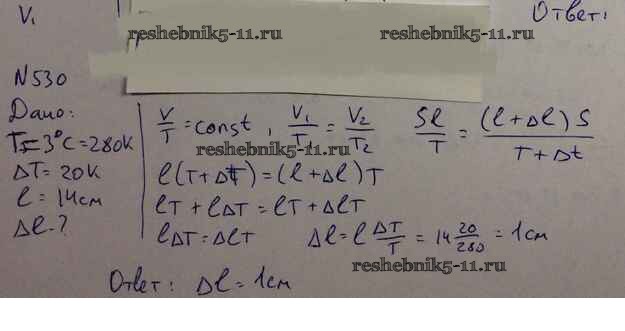 V₁ Ответ:
reshebnik5-11.ru reshebnik5-11.ru
N530
Дано:
T=3°C=280K
ΔT=20K
l=14см
Δl-?
V/T=const, V₁/T₁=V₂/T₂ Sl/T=(l+Δl)S/T+Δt
reshebnik5-11.ru
l(T+ΔT)=(l+Δl)T
lT+lΔT=lT+ΔlT
lΔT=ΔlT Δl=l ΔT/T=14 20/280=1см
reshebnik5-11.ru
Ответ: Δl=1см